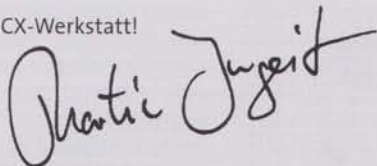 CX-Werkstatt!
Martin Jungeit